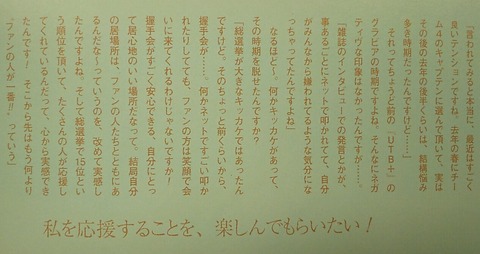 「言われてみると本当に、最近はすごく
良いテンションですね。去年の春にチー
ム4のキャプテンに選んで頂いて、実は
その後の去年の後半くらいは、結構悩み
多き時期だったんですけど……」
それってちょうど前の『UTB+』の
グラビアの時期ですよね。そんなにネガ
ティヴな印象はなかったんですが……。
「雑誌のインタビューでの発言とかが、
事あるごとにネットで叩かれてて、自分
がみんなから嫌われてるような気分にな
っちゃってたんですよね」
なるほど〜。何かキッカケがあって、
その時期を脱せたんですか？
「総選挙が大きなキッカケではあったん
ですけど。そのちょっと前くらいから、
握手会が……。何かネットですごい叩か
れたりしてても、ファンの方は笑顔で会
いに来てくれるわけじゃないですか！
握手会がすごく安心できる、自分にとっ
て居心地のいい場所だなって。結局自分
の居場所は、ファンの人たちとともにあ
るんだな〜っていうのを、改めて実感し
たんですよね。そして総選挙で15位とい
う順位を頂いて、たくさんの人が応援し
てくれているんだって、心から実感でき
たんです！　そこから先はもう何より
〝ファンの人が一番!!〟っていう」
私を応援することを、楽しんでもらいたい！